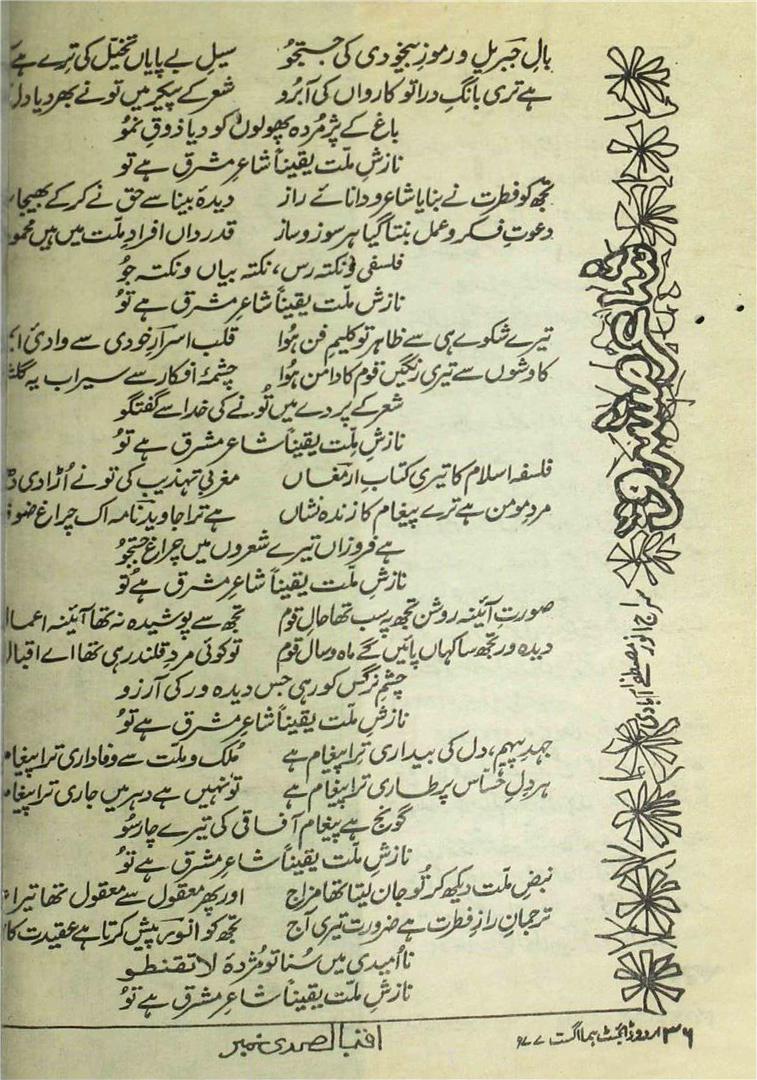 شاعرِ مشرق
سراج انور مصطفےٰ آبادی
بالِ جبریل و رموزِ بیخودی کی جستجوُ سیلِ بے پایاں تخیّل کی ترے ہے
ہے تری بانگِ درا تو کارواں کی آبرُو شعر کے پیکر میں تونے بھر دیا دل
باغ کے پژمُردہ پھولوں کو دیا ذوقِ نموُ
نازشِ ملّت یقیناً شاعرِ مشرق ہے تو
تجھ کو فطرت نے بنایا شاعر و دانائے راز دیدۂ بینا سے حق نے کر کے بھیجا
دعوتِ فکر و عمل بنتا گیا ہر سوز و ساز قدرداں افرادِ ملّت میں ہیں
فلسفی و نکتہ رس، نکتہ بیاں و نکتہ جوُ
نازشِ ملّت یقیناً شاعرِ مشرق ہے توُ
تیرے شکوے ہی سے ظاہر تو کلیمِ فن ہُوا قلب اسرارِ خودی سے وادئ
کاوشوں سے تیری رنگیں قوم کا دامن ہُوا چشمۂ افکار سے سیراب یہ
شعر کے پردے میں تُو نے کی خدا سے گفتگو
نازشِ ملّت یقیناً شاعرِ مشرق ہے توُ
فلسفہ اسلام کا تیری کتابِ ارمغاں مغربی تہذیب کی تو نے اُڑا دی
مردِ مومن ہے ترے پیغام کا زندہ نشاں ہے ترا جاوید نامہ اک چراغِ
ہے فروزاں تیرے شعروں میں چراغِ جستجوُ
نازشِ ملّت یقیناً شاعرِ مشرق ہے تُو
صورتِ آئینہ روشن تجھ پہ سب تھا حالِ قوم تجھ سے پوشیدہ نہ تھا آئینہ
دیدہ ور تجھ سا کہاں پائیں گے ماہ و سال قوم تو کوئی مردِ قلندر ہی تھا اے
چشمِ نرگس کو رہی جس دیدہ ور کی آرزو
نازشِ ملّت یقیناً شاعرِ مشرق ہے توُ
جہدِ پیہم، دل کی بیداری ترا پیغام ہے مُلک و ملّت سے وفاداری ترا
ہر دلِ حسّاس پر طاری ترا پیغام ہے تو نہیں ہے دہر میں جاری ترا
گونج ہے پیغامِ آفاقی کی تیرے چار سوُ
نازشِ ملّت یقیناً شاعرِ مشرق ہے توُ
نبضِ ملّت دیکھ کر تُو جان لیتا تھا مزاج اور پھر معقول سے معقول تھا تیرا
ترجمانِ رازِ فطرت ہے ضرورت تیری آج تجھ کو انورؔ پیش کرتا ہے عقیدت کا
نااُمیدی میں سُنا تو مُژدہ لاتقنطو
نازشِ ملّت یقیناً شاعرِ مشرق ہے توُ
۳۶ اردو ڈائجسٹ ہما اگست ۷۷ء
اقبال صدی نمبر